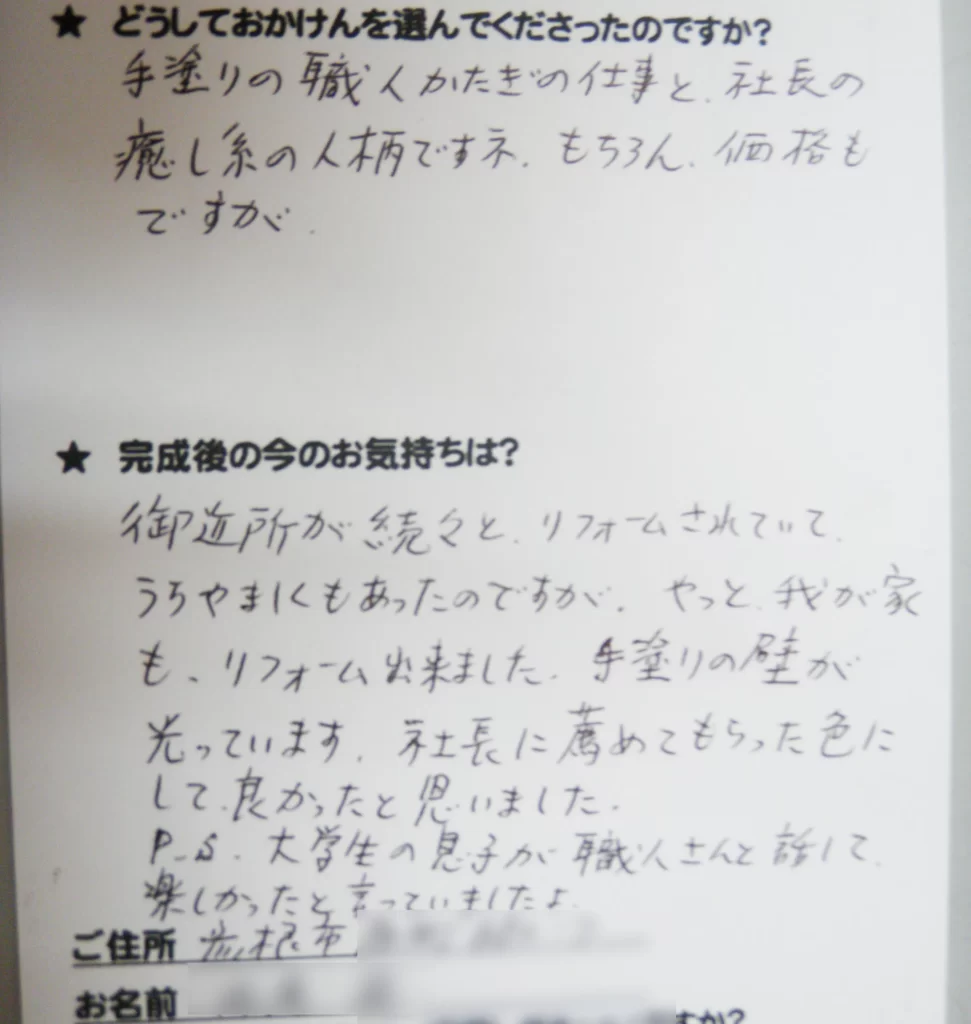 ★ どうしておかけんを選んでくださったのですか?
手塗りの職人かたぎの仕事と、社長の
癒し系の人柄ですネ。もちろん、価格も
ですが。
★ 完成後の今のお気持ちは?
御近所が続々と、リフォームされていて、
うらやましくもあったのですが、やっと、我が家
も、リフォーム出来ました。手塗りの壁が
光っています。社長に薦めてもらった色に
して、良かったと思いました。
P.S. 大学生の息子が職人さんと話して、
楽しかったと言っていましたよ。
ご住所 彦根市
お名前
すか?